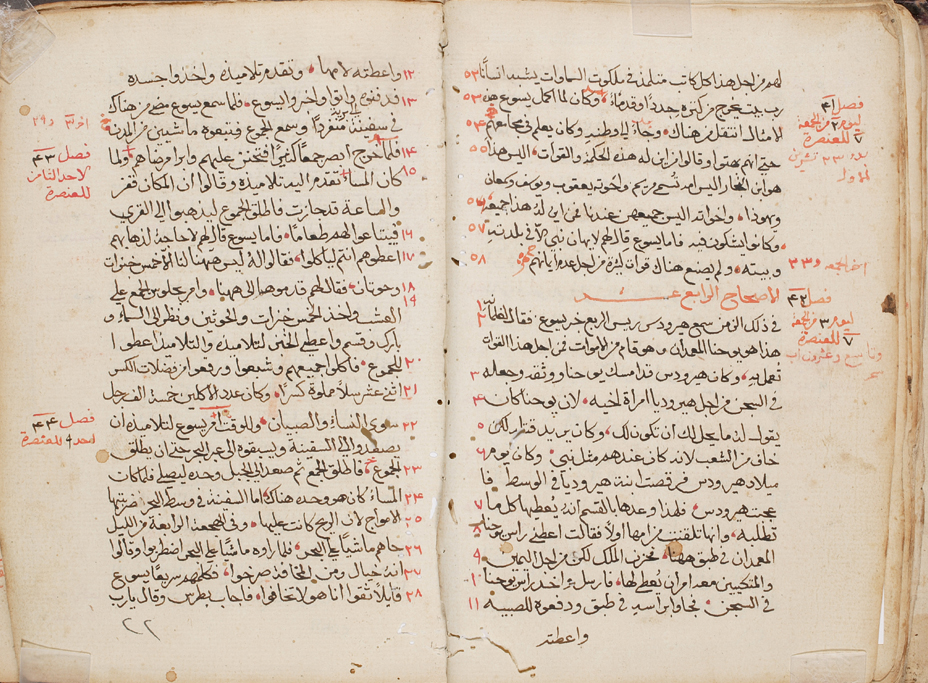 لهم من اجل هذا كل كاتب متلمذ في ملكوت السماوات يشبه انسانًا ٥٢
رب بيت يخرج من كنزه جددا وقدما وكان لما اكمل يسوع هذه ٥٣
الامثال انتقل من هناك وجا الى وطنه وكان يعلم في مجامعهم ٥٤
حتى انهم بهتوا وقالوا من اين له هذه الحكمة والقوات اليس هذا ٥٥
هو ابن النجار اليس امه تسمى مريم واخوته يعقوب ويوسف وسمعان
ويهوذا واخواته اليس جميعهن عندنا فمن اين له هذا جميعه ٥٦
وكانوا يشكون فيه فاما يسوع قال لهم لا يهان نبي الا في بلدته ٥٧
وبيته ولم يصنع هناك قوات كثيرة من اجل عدم ايمانهم ٥٨
الاصحاح الرابع عشر
في ذلك الزمن سمع هيرودس ريس الربع خبر يسوع فقال لغلمانه ١
هذا هو يوحنا المعمدان وهو قام من الاموات فمن اجل هذا القوات ٢
تعمل به وكان هيرودس قد امسك يوحنا ووثقه وجعله ٣
في السجن من اجل هيروديا امراة اخيه لان يوحنا كان ٤
يقول له ما يحل لك ان تكون لك وكان يريد قتله لكن ٥
خاف من الشعب لانه كان عندهم مثل نبي وكان يوم ٦
ميلاد هيرودس فرقصت ابنة هيروديا في الوسط فا
عجبت هيرودس فلهذا وعدها بالقسم انه يعطيها كل ما ٧
تطلبه وانها تلقنت من امها اولا فقالت اعطني راس يوحنا ٨
المعمدان في طبق ههنا فحزن الملك لكن من اجل اليمين ٩
والمتكيين معه امر ان يعطى لها فارسل اخذ راس يوحنا ١٠
في السجن فجاوا براسه في طبق ودفعوه للصبيه ١١
واعطته
فصل ٤١
ليوم ٢ من الجمعة
٧ للعنصرة
فصل ٤٢
ليوم ٣ من الجمعة
٧ للعنصرة
١٢ واعطته لامها وتقدم تلاميذه واخذوا جسده
١٣ فدفنوه واتوا واخبروا ليسوع فلما سمع يسوع مضى من هناك
في سفينة منفردًا وسمع الجموع فتبعوه ماشيين من المدن
١٤ فلما خرج ابصر جمعًا كثيرًا فتحنن عليهم وابرا مرضاهم ولما
١٥ كان المساء تقدم اليه تلاميذه وقالوا ان المكان قفر
والساعة قد جازت فاطلق الجموع ليذهبوا الى القرى
١٦ فيبتاعوا لهم طعامًا فاما يسوع قال لهم لا حاجة لذهابهم
١٧ اعطوهم انتم لياكلوا فقالوا له ليس ههنا لنا الا خمس خبزات
١٨ وحوتان فقال لهم قدموها الى ههنا وامر بجلوس الجمع على
١٩ العشب واخذ الخمس خبزات والحوتين ونظر الى السماء و
بارك وقسم واعطى الخبز لتلاميذه والتلاميذ اعطوا
٢٠ للجموع فاكلوا جميعهم وشبعوا ورفعوا من فضلات الكسر
٢١ اثني عشر سلا مملوة كسرًا وكان عدد الاكلين خمسة الف رجل
٢٢ سوى النساء والصبيان وللوقت امر يسوع لتلاميذه ان
يصعدوا الى السفينة ويسبقوه الى عبر البحر حتى ان يطلق
٢٣ الجموع فاطلق الجمع ثم صعد الى الجبل وحده ليصلي فلما كان
٢٤ المساء كان هو وحده هناك اما السفينة في وسط البحر ضربتها
٢٥ الامواج لان الريح كانت عليها وفي الهجعة الرابعة من الليل
٢٦ جاهم ماشيًا على البحر فلما راوه ماشيًا على البحر اضطربوا وقالوا
٢٧ انه خيال ومن المخافة صرخوا فكلمهم سريعًا يسوع
٢٨ قايلا ثقوا انا هو لا تخافوا فاجاب بطرس وقال يارب
٢٢
فصل ٤٣
لاحد الثامن
للعنصرة
فصل ٤٤
لاحد ٩ للعنصرة